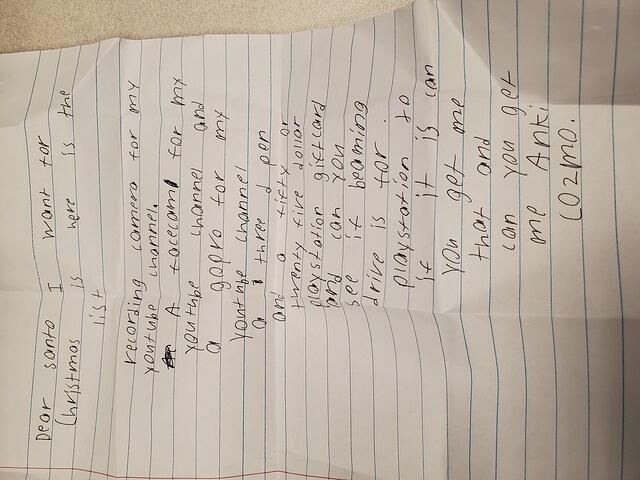 Dear santa I want for
Christmas is here is the
list
recording camera for my
youtube channel.
A facecam for my
youtube channel and
a gopro for my
youtube channel
a three d pen
and a fifty or
twenty five dollar
playstation giftcard
and can you
see if beaming
drive is for
playstation to
if it is can
you get me
that and
can you get
me Anki
Cozmo.